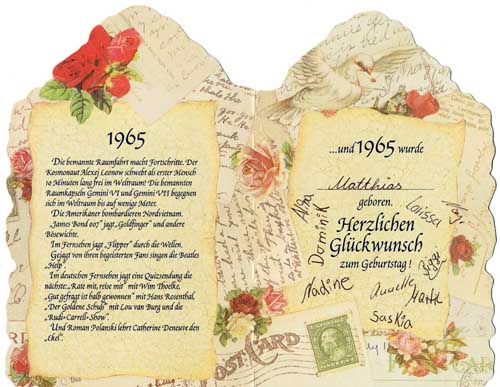 1965
Die bemannte Raumfahrt macht Fortschritte. Der
Kosmonaut Alexej Leonow schwebt als erster Mensch
10 Minuten lang frei im Weltraum! Die bemannten
Raumkapseln Gemini VI und Gemini VII begegnen
sich im Weltraum bis auf wenige Meter.
Die Amerikaner bombardieren Nordvietnam.
„James Bond 007" jagt „Goldfinger" und andere
Bösewichte.
Im Fernsehen jagt „Flipper" durch die Wellen.
Gejagt von ihren begeisterten Fans singen die Beatles
„Help".
Im deutschen Fernsehen jagt eine Quizsendung die
nächste: „Rate mit, reise mit" mit Wim Thoelke,
„Gut gefragt ist halb gewonnen" mit Hans Rosenthal,
„Der Goldene Schuß" mit Lou van Burg und die
„Rudi-Carrell-Show".
Und Roman Polanski lehrt Catherine Deneuve den
„Ekel".
...und 1965 wurde
Matthias
geboren.
Herzlichen
Glückwunsch
zum Geburtstag!
Dominik
Larissa
Nadine
Annette
Saskia
POST-CARD